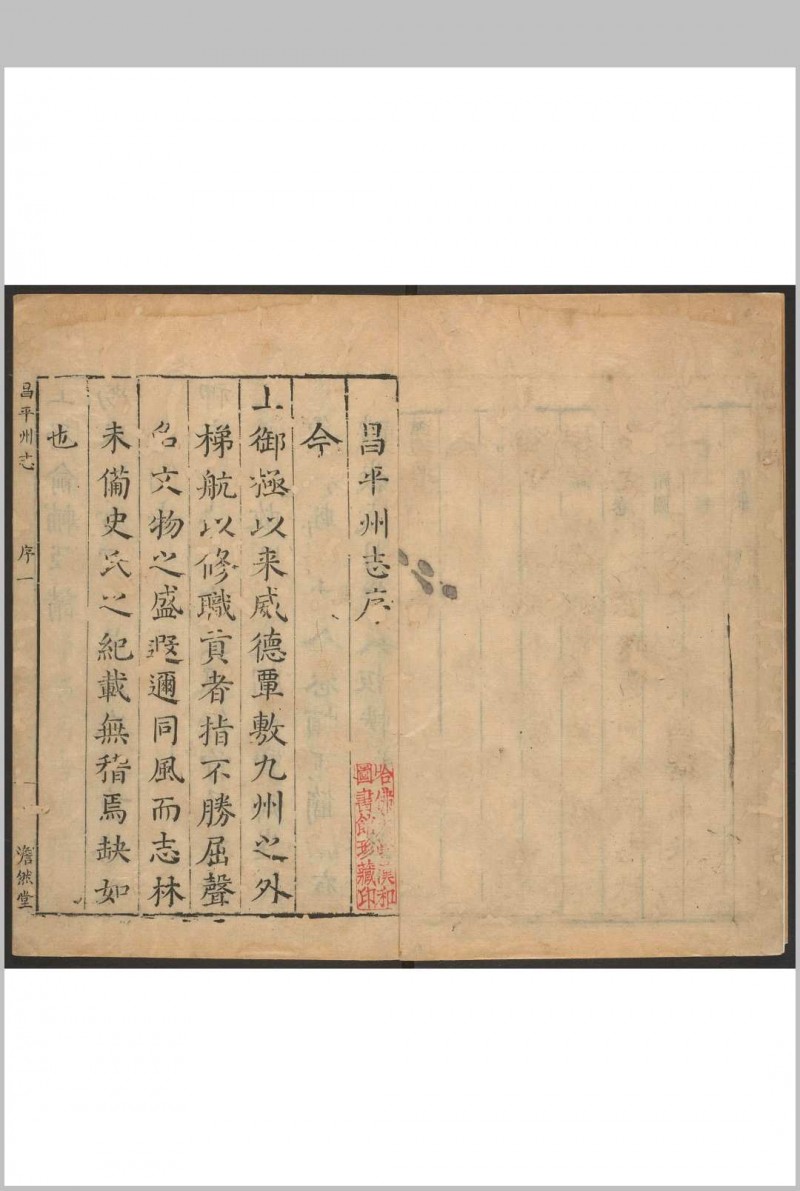 昌平州志序
今
上御極以来威德覃敷九州之外
梯航以修職貢者指不勝屈聲
名文物之盛遐邇同風而志林
未備史氏之紀載無稽焉缺如
也
昌平州志
序一
澹然堂
哈佛漢和
圖書館珍藏印